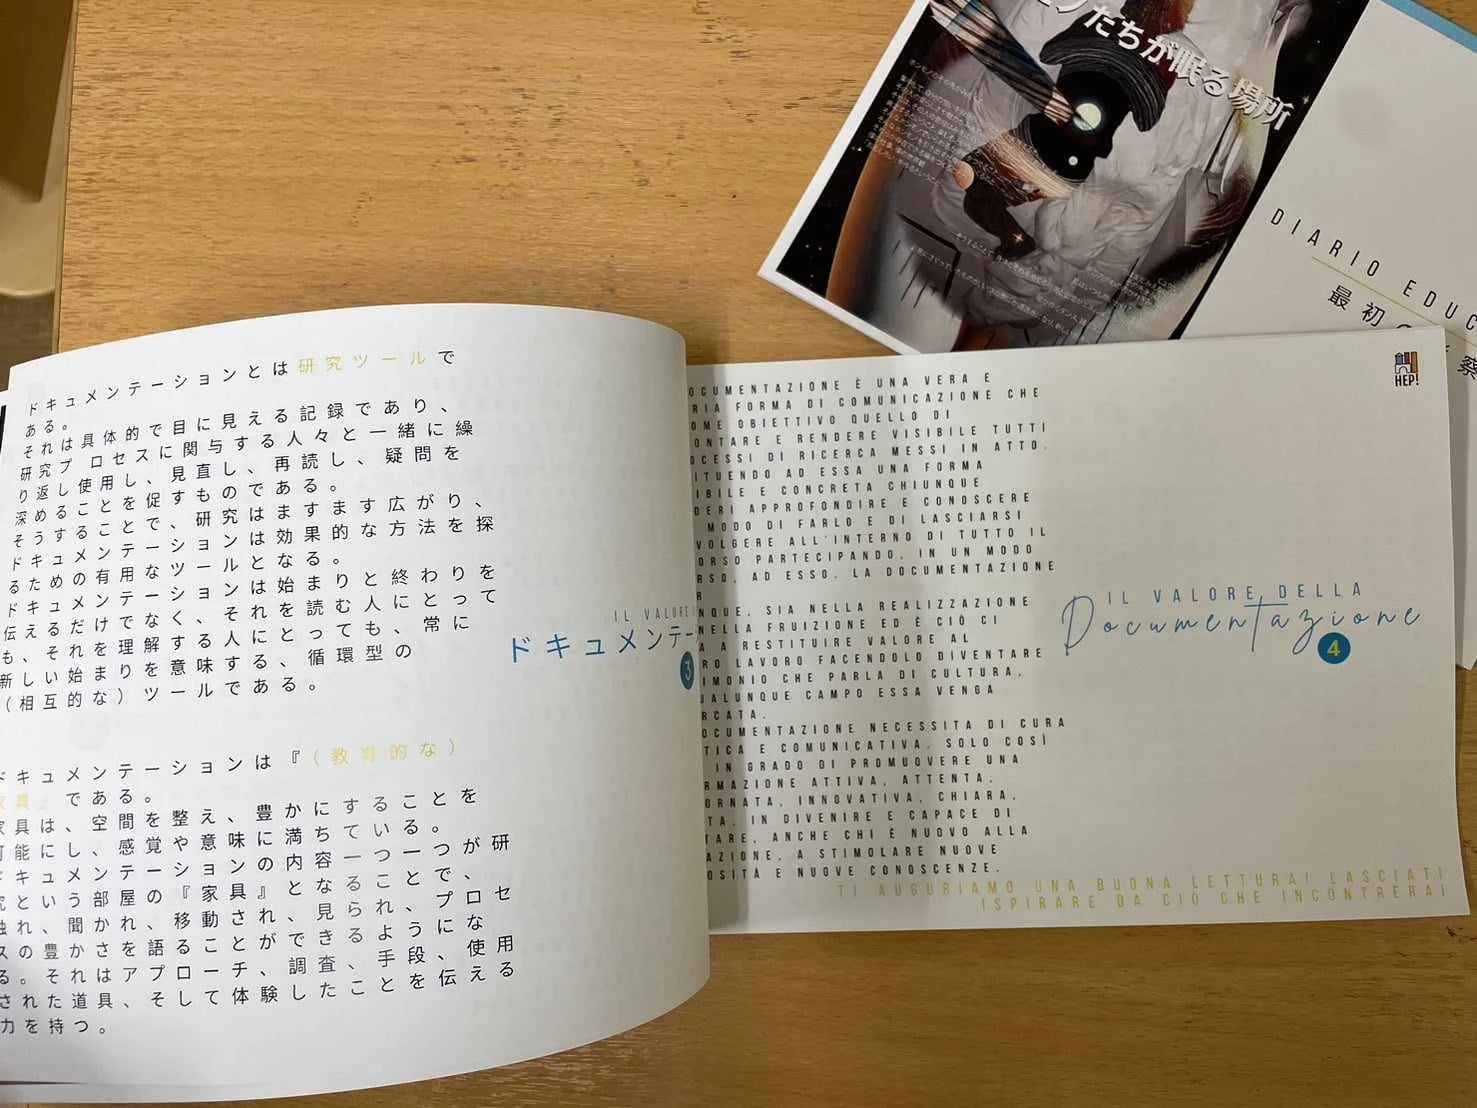 ドキュメンテーションとは研究ツールで
ある。
それは具体的で目に見える記録であり、
研究プロセスに関与する人々と一緒に繰
り返し使用し、見直し、再読し、疑問を
深めることを促すものである。
そうすることで、研究はますます広がり、
ドキュメンテーションは効果的な方法を探
るための有用なツールとなる。
ドキュメンテーションは始まりと終わりを
伝えるだけでなく、それを読む人にとって
も、それを理解する人にとっても、常に
新しい始まりを意味する、循環型の
（相互的な）ツールである。
ドキュメンテーションは『（教育的な）
家具』である。
家具は、空間を整え、豊かにすることを
可能にし、感覚や意味に満ちている。
ドキュメンテーションの内容一つ一つが研
究という部屋の『家具』となることで、
触れ、聞かれ、移動され、見られ、プロセ
スの豊かさを語ることができるようにな
る。それはアプローチ、調査、手段、使用
された道具、そして体験したことを伝える
力を持つ。
IL VALORE
ドキュメンテー
3
OCUMENTAZIONE È UNA VERA E
RIA FORMA DI COMUNICAZIONE CHE
OME OBIETTIVO QUELLO DI
ONTARE E RENDERE VISIBILE TUTTI
OCESSI DI RICERCA MESSI IN ATTO.
ITUENDO AD ESSA UNA FORMA
IBILE E CONCRETA CHIUNQUE
DERI APPROFONDIRE E CONOSCERE
MODO DI FARLO E DI LASCIARSI
VOLGERE ALL'INTERNO DI TUTTO IL
ORSO PARTECIPANDO, IN UN MODO
RSO, AD ESSO. LA DOCUMENTAZIONE
R
NQUE, SIA NELLA REALIZZAZIONE
NELLA FRUIZIONE ED È CIÒ CI
A A RESTITUIRE VALORE AL
RO LAVORO FACENDOLO DIVENTARE
IMONIO CHE PARLA DI CULTURA,
UALUNQUE CAMPO ESSA VENGA
RCATA.
OCUMENTAZIONE NECESSITA DI CURA
TICA E COMUNICATIVA, SOLO COSÌ
IN GRADO DI PROMUOVERE UNA
RMAZIONE ATTIVA, ATTENTA,
ORNATA, INNOVATIVA, CHIARA,
TA, IN DIVENIRE E CAPACE DI
TARE, ANCHE CHI È NUOVO ALLA
AZIONE, A STIMOLARE NUOVE
OSITÀ E NUOVE CONOSCENZE.
TI AUGURIAMO UNA BUONA LETTURA! LASCIATI
ISPIRARE DA CIÒ CHE INCONTRERAI
IL VALORE DELLA
Documentazione
4
HEP!
たちが眠る場所
DIARIO EDUC
最初の
察